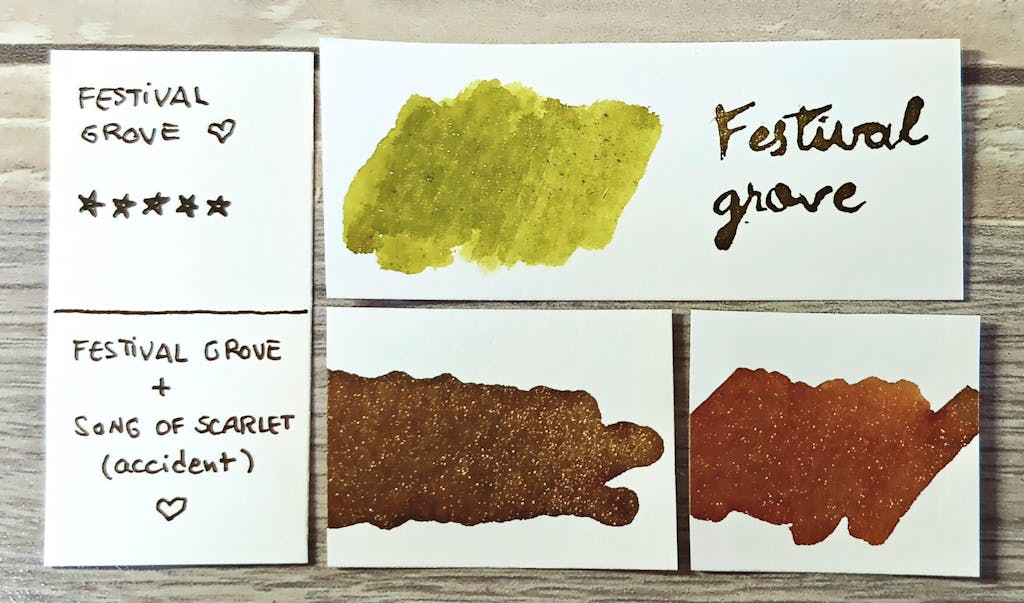 FESTIVAL
GROVE ♡
☆☆☆☆☆
FESTIVAL GROVE
+
SONG OF SCARLET
(accident)
♡
Festival
grove